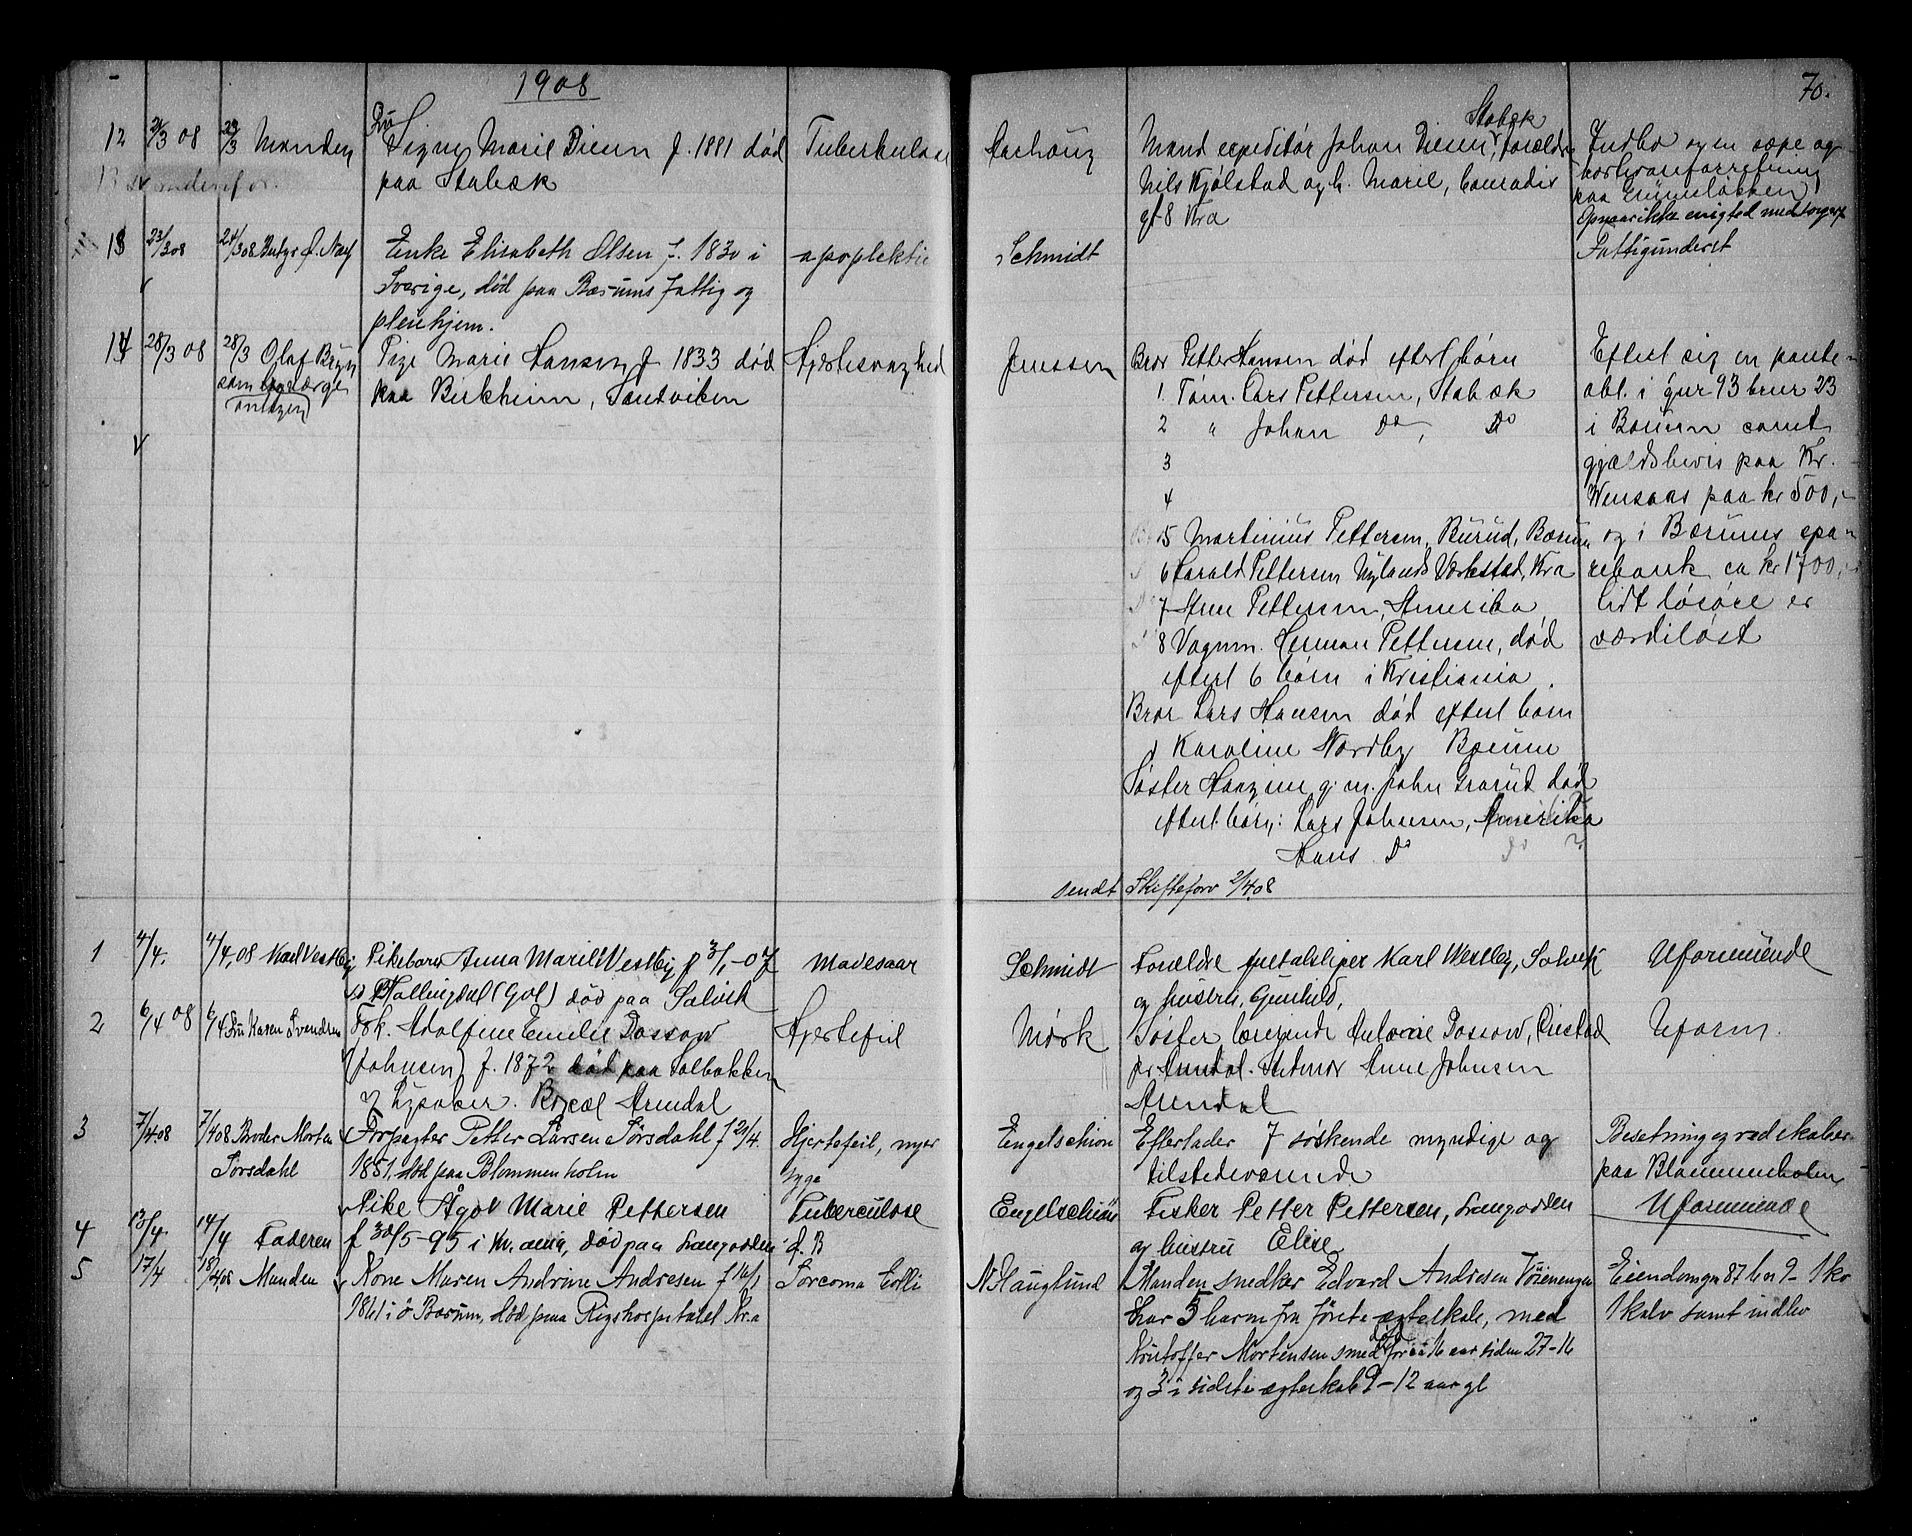 1908
70.
12 21/3 08 23/3 Manden Fru Signe Marie Diesen f. 1881 død Tuberkulose Mand expeditør Johan Diesen, Stabæk forældre Indbo og en sæpe og
paa Stabæk Nils Kjølstad og h. Marie,
gt 8 Kra paa Grünerløkken
13 23/3 08 24/3 08 Enke Elisabeth Olsen f. 1830 i apoplektic Schmidt Fattigunderst
Sverige, død paa Bærums Fattig og
pleiehjem.
14 28/3 08 28/3 Olaf Bryn Pige Marie Hansen f 1833 død Hjertesvaghed Jenssen Bror Petter Hansen død efterl børn Efterl sig en pante
som værge paa Birkheim, Sandviken 1. Tøm. Lars Pettersen, Stabæk obl. i gnr 93 brnr 23
antagen 2 " Johan do, do i Bærum samt
3 gjældsbevis paa Kr.
4 paa kr 500,-
5 Martinius Pettersen, Burud, Bærum og i Bærums spa-
6 Harald Pettersen Nylands Værksted, Kra rebank ca kr 1700,-
7 Pettersen, Amerika lidt løsøre er
8 Vognm. Herman Pettersen, død værdiløst
efterl 6 børn i Kristiania
Bror Lars Hansen død efterl barn
Karoline Nordby Bærum
Søster g. m. John død
efterl børn: Lars Johnsen, Amerika
Hans do do
sendt Skifteforv 2/4 08
1 4/4. 4/4.08 Karl Vestby Pikebarn Anna Marie Vestby f 3/1-07 Mavesaar Schmidt Forældre metalsliper Karl Westby, Solvik Uformuende
i Hallingdal (Gol) død paa Solvik og hustru, Gunhild,
2 6/4 08 6/4 Fru Karen Svendsen Frk. Adolfine Emilie Dossow Hjertefeil Mørk Søster lærerinde Dossow, Uform.
(Johnsen) f. 1872 død paa Solbakken pr Arendal. Anne Johnsen
v/ Lysaker. Arendal Arendal
3 7/4 08 7/4 08 Broder Morten Forpagter Petter Larsen Sørsdahl f 21/4. Hjertefeil, nyer Engelschiøn Efterlader 7 søskende myndige og Besetning og redskaber
Sørsdahl 1851. død paa Blommenholm syge tilstedeværende paa Blommenholm
4 13/4. 14/4 Faderen Pike Ågot Marie Pettersen Tuberculose Engelschiøn Fisker Petter Pettersen, Langodden Uformuende
f 30/5-95 i død paa Langodden og hustru Elise
5 17/4 18/4 08 Manden Kone Maren Andrine Andresen f 16/1 Sarcoma Colli N. Hauglund Manden snedker Edvard Andresen Eiendom gn 87 bn 9 - 1 ko
1861 i ø Bærum, død paa Rigshospitalet Kr.a har 5 barn fra første ægteskab, med 1 kalv samt indbo
Kristoffer Mortensen smed død for ca 16 aar siden 27-16
og 3 i sidste ægteskab 9-12 aar gl